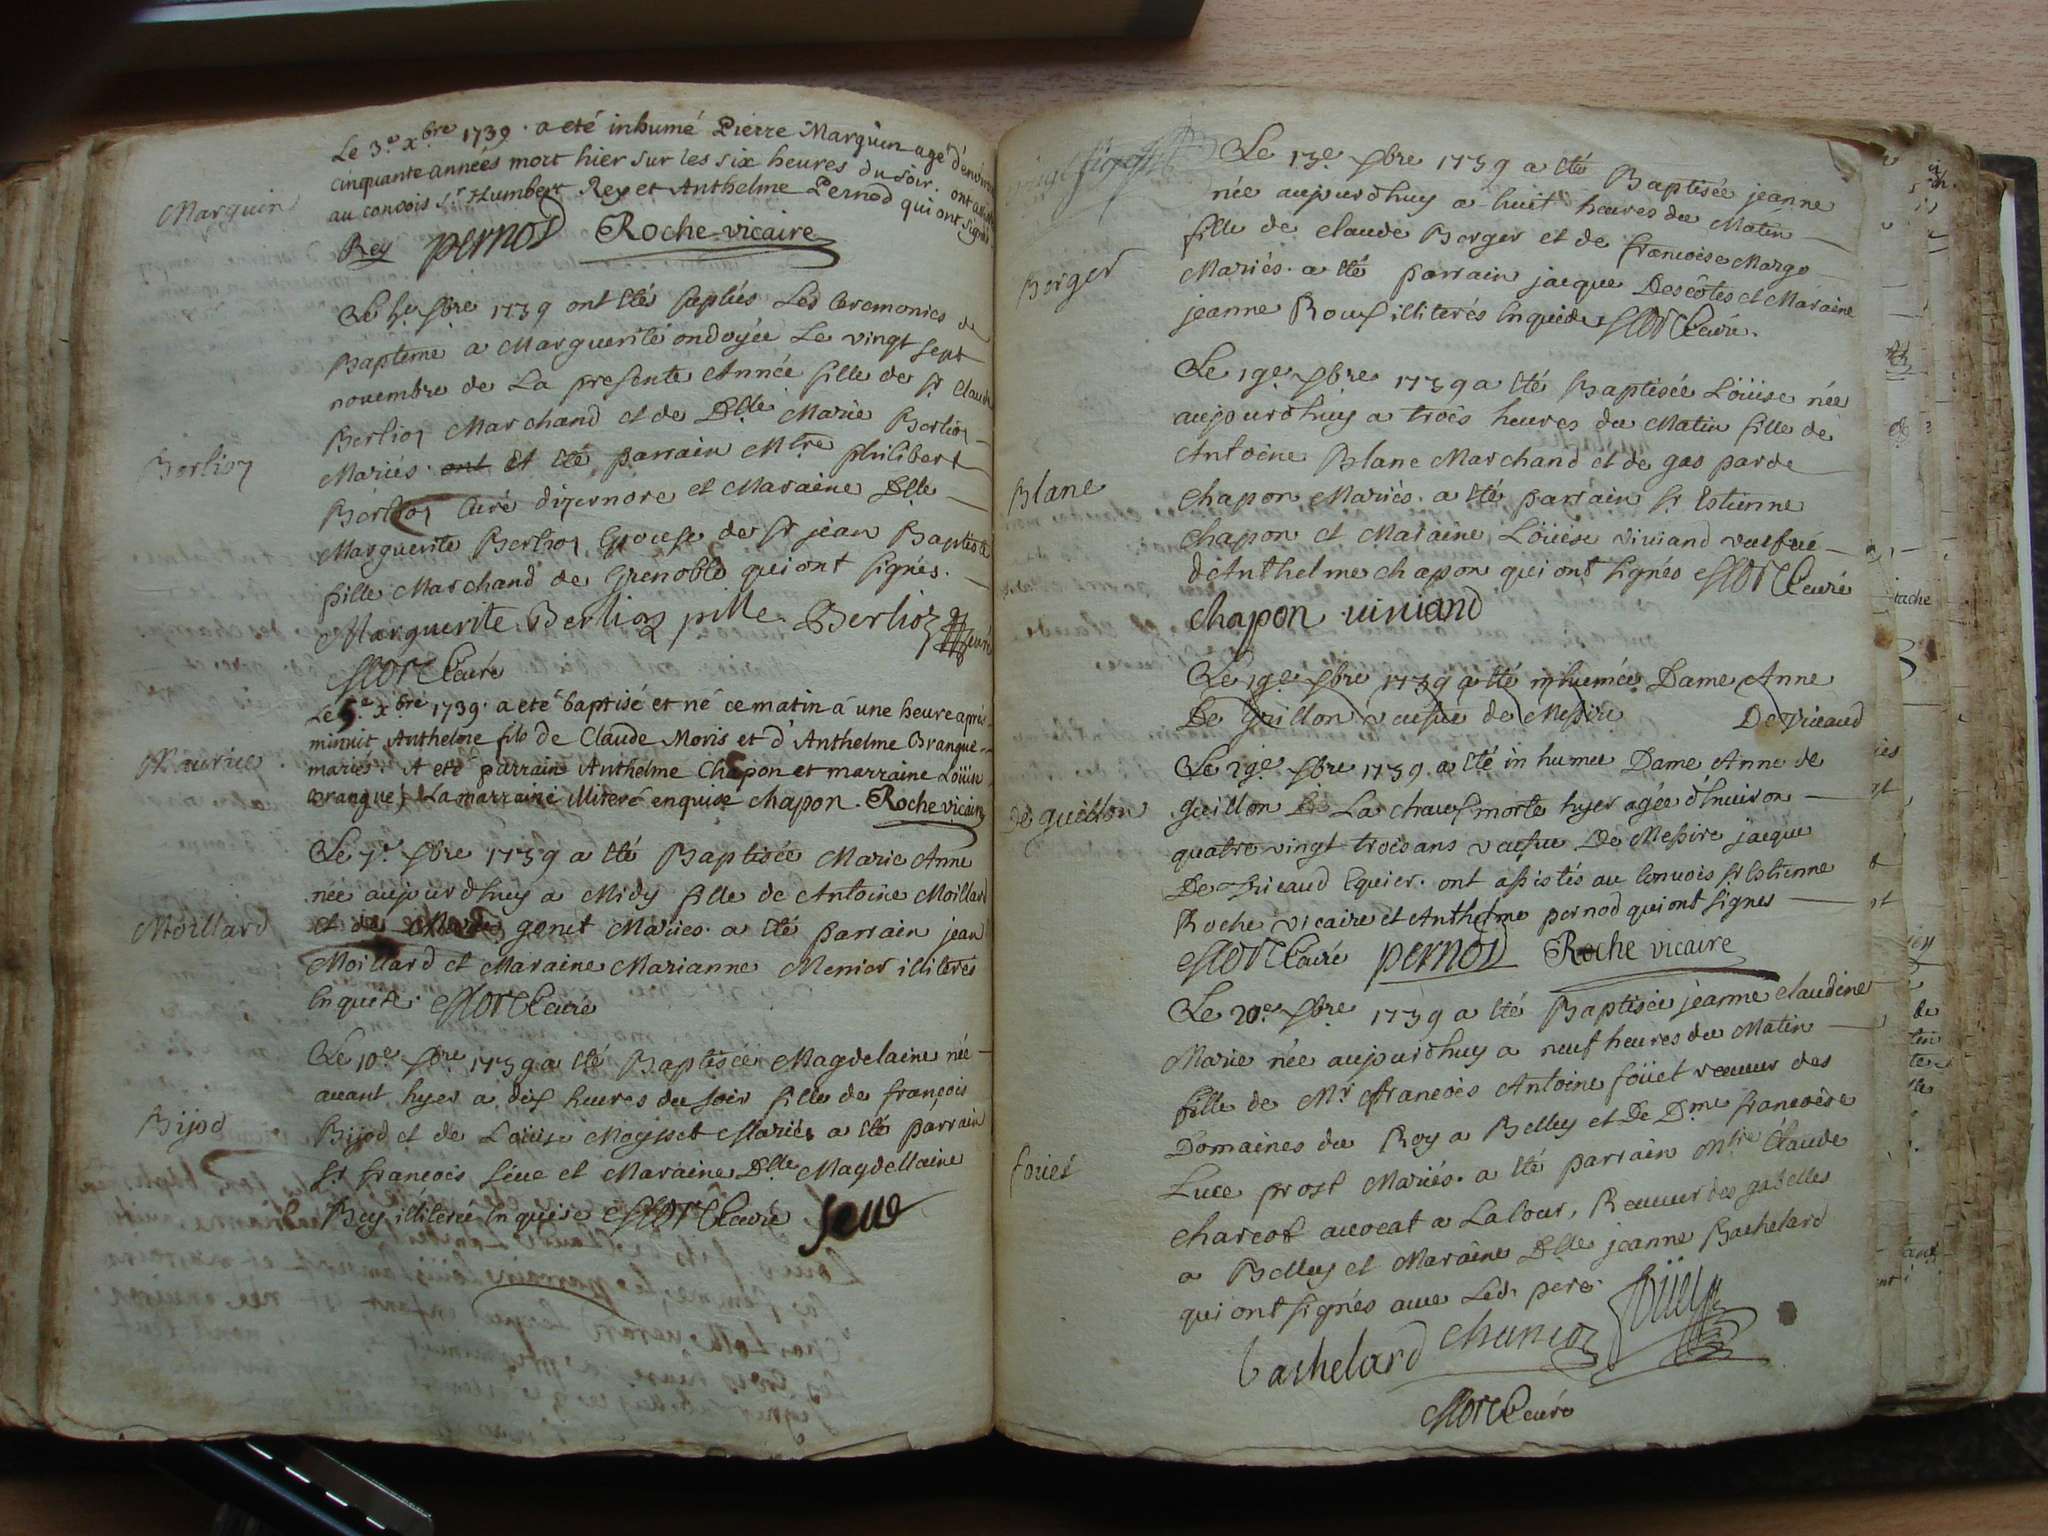 Marquin
Le 3.e xbre 1739. a eté inhumé Pierre Marquin agé d'environ
cinquante années mort hier sur les six heures du soir. ont assisté
au convois Sr. Humbert Rey et Anthelme Pernod qui ont signés
Rey pernod Roche vicaire
Le xbre 1739 ont étés supléés Les Ceremonies de
Baptême a Marguerite ondoyée Le vingt sept
novembre de La presente Année fille de Sr Claude
Berlioz Marchand et de Dlle Marie Berlioz
Berlioz
Mariés. ont et été parrain Mtre philibert
Berlioz Curé dizernore et Maraine Dlle
Marguerite Berlioz Epouse de Sr jean Baptiste
pille Marchand de Grenoble qui ont signés.
Marguerite Berlioz pille Berlioz curé
curé
Le 5.e xbre 1739. a eté baptisé et né ce matin á une heure aprés
minuit Anthelme fils de Claude Moris et d'Anthelme Branque
Maurice
mariés. A eté parrain Anthelme Chapon et marraine Loüise
Branque, La marraine illiteré enquise chapon. Roche vicaire
Le 7.e xbre 1739 a été Baptisée Marie Anne
née aujourdhuy a Midy fille de Antoine Moillard
Moillard
et de Marie gonet Mariés. a été parrain jean
Moillard et Maraine Marianne Menier illiterés
Enquis. curé
Le 10e xbre 1739 a été Baptisée Magdelaine née
avant hyer a dix heures du soir fille de françois
Bijod
Bijod et de Loüise Moysset Mariés a été parrain
Sr. francois Seve et Maraine Dlle Magdellaine
Rey illiterée Enquise curé Seve
Le 13e xbre 1739 a été Baptisée jeanne
née aujourdhuy a huit heures du Matin
fille de claude Borger et de francoise Margo
Borger
Mariés. a été parrain jacque Descôtes et Maraine
jeanne Roux illiterés Enquis curé.
Le 19e xbre 1739 a été Baptisée Loüise née
aujourdhuy a trois heures du Matin fille de
Antoine Blanc Marchand et de gasparde
Blanc
chapon Mariés. a été parrain Sr Estienne
chapon et Maraine Loüise viviand veufve
d'Anthelme chapon qui ont signés curé
chapon viviand
Le 19e xbre 1739 a été inhumée Dame Anne
De Guillon veufue de Messire De Tricaud
Le 19e xbre 1739. a été in humée Dame Anne de
De guillon
guillon De La chaux morte hyer agée d'Enuiron
quatre vingt trois ans veufue De Messire jacque
De Tricaud Equier. ont assistés au Convois Sr Estienne
Roche vicaire et Anthelme pernod qui ont signes
curé pernod Roche vicaire
Le 20e xbre 1739 a été Baptisée jeanne claudine
Marie née aujourdhuy a neuf heures du Matin
fille de Mr francois Antoine foüet receveur des
Domaines du Roy a Belley et De Dme francoise
foüet
Luce prost Mariés. a été parrain Mtre Claude
charcot avocat a La Cour, Receveur des gabelles
a Belley et Maraine Dlle jeanne Bachelard
qui ont signés avec Led. pere. foüet
bachelard
curé